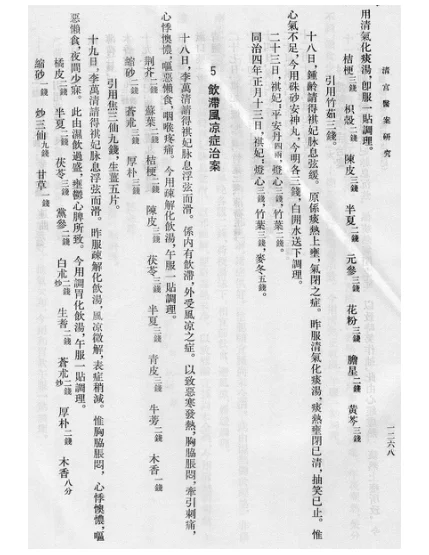 清宮醫案研究
一二六八
用清氣化痰湯，卽服一貼調理。
桔梗三錢 枳殼二錢 陳皮二錢 半夏二錢 元參三錢 花粉三錢 膽星二錢 黃芩三錢
引用竹茹三錢。
十八日，鍾齡請得祺妃脉息弦緩。原係痰熱上壅，氣閉之症。昨服清氣化痰湯，痰熱壅閉已清，抽笑已止。惟
心氣不足，今用硃砂安神丸，今明各三錢，白開水送下調理。
二十三日，祺妃，平安丹四兩，燈心三錢，竹葉二錢。
同治四年正月十三日，祺妃：燈心三錢，竹葉三錢，麥冬五錢。
5 飲滯風凉症治案
十八日，李萬清請得祺妃脉息浮弦而滑。係內有飲滯，外受風凉之症。以致惡寒發熱，胸脇脹悶，牽引刺痛，
心悸懊憹，嘔惡懶食，咽喉疼痛。今用疎解化飲湯，午服一貼調理。
荆芥二錢 蘇葉二錢 桔梗二錢 陳皮三錢 茯苓三錢 半夏三錢 青皮三錢 牛蒡二錢 木香一錢
縮砂二錢 蒼朮三錢 厚朴三錢
引用焦三仙九錢，生薑五片。
十九日，李萬清請得祺妃脉息浮弦而滑。昨服疎解化飲湯，風凉微解，表症稍減。惟胸脇脹悶，心悸懊憹，嘔
惡懶食，夜間少寐。此由濕飲過盛，壅鬱心脾所致。今用調胃化飲湯，午服一貼調理。
橘皮二錢 半夏三錢 茯苓三錢 黨參二錢 白朮炒二錢 生耆二錢 蒼朮炒二錢 厚朴二錢 木香八分
縮砂一錢 炒三仙九錢 甘草一錢